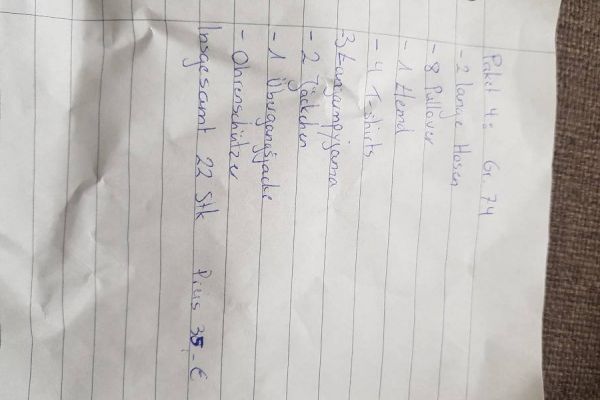 Paket 4: Gr. 74
- 2 lange Hosen
- 8 Pullover
- 1 Hemd
- 4 T-shirts
- 3 Langarmpyjama
- 2 Jäckchen
- 1 Übergangsjacke
- Ohrenschützer
Insgesamt 22 Stk Preis 35,-€